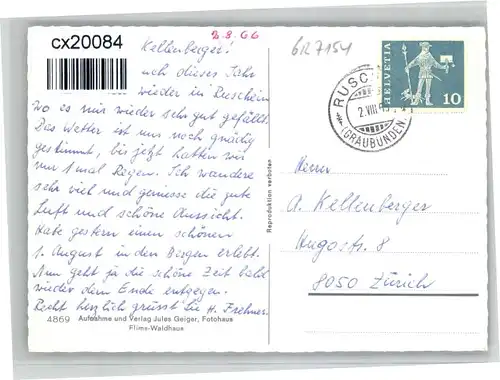 cx20084
2.8.66
6R7154
Kellenberger!
uch dieses Jahr
wieder in Ruschein
wo es mir wieder sehr gut gefällt.
Das Wetter ist uns noch gnädig
gestimmt, bis jetzt hatten wir
nur 1 mal Regen. Ich wandere
sehr viel und geniesse die gute
Luft und schöne Aussicht.
Habe gestern einen schönen
1. August in den Bergen erlebt.
Nun geht ja die schöne Zeit bald
wieder dem Ende entgegen.
Recht herzlich grüsst Sie H. Frehner
4869 Aufnahme und Verlag Jules Geiger, Fotohaus
Flims-Waldhaus
Reproduktion verboten
RUSC
2.VIII
(GRAUBÜNDEN)
HELVETIA
10
Herrn
A. Kellenberger
Hugostr. 8
8050 Zürich